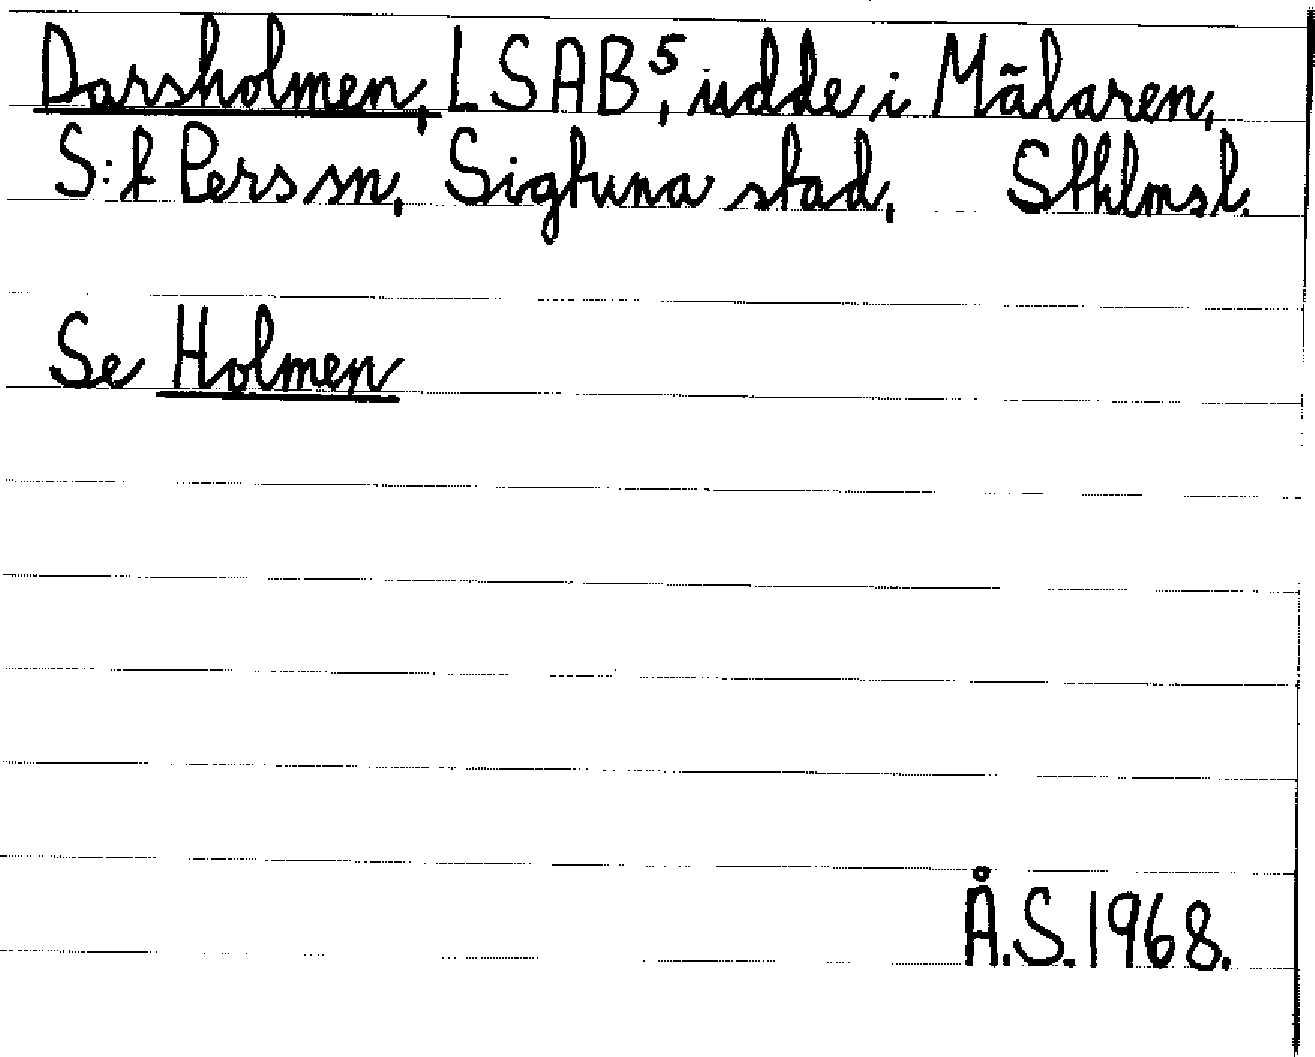 Darsholmen, LSAB⁵, udde i Mälaren,
S:t Pers sn, Sigtuna stad, Sthlmsl.
Se Holmen
Å.S. 1968.